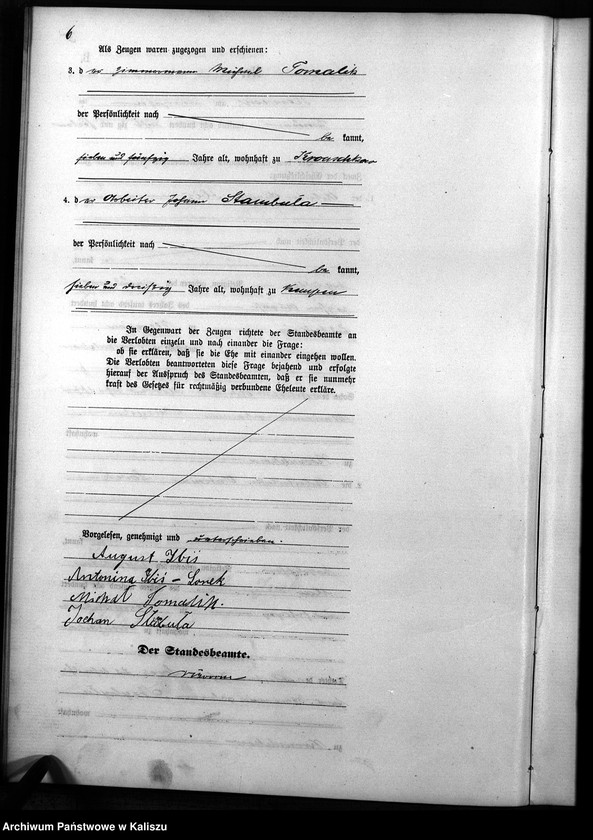 6
Als Zeugen waren zugezogen und erschienen:
3. d er Zimmermann Michael Tomalik
der Persönlichkeit nach
be kannt,
sieben und fünfzig Jahre alt, wohnhaft zu
4. d er Arbeiter Johann Stambula
der Persönlichkeit nach
be kannt,
sieben und dreißig Jahre alt, wohnhaft zu Kempen
In Gegenwart der Zeugen richtete der Standesbeamte an
die Verlobten einzeln und nach einander die Frage:
ob sie erklären, daß sie die Ehe mit einander eingehen wollen.
Die Verlobten beantworteten diese Frage bejahend und erfolgte
hierauf der Ausspruch des Standesbeamten, daß er sie nunmehr
kraft des Gesetzes für rechtmäßig verbundene Eheleute erkläre.
Vorgelesen, genehmigt und unterschrieben.
August Ibis
Antonina Ibis - Lorek
Michal Tomalik.
Jochan
Der Standesbeamte.
Archiwum Państwowe w Kaliszu